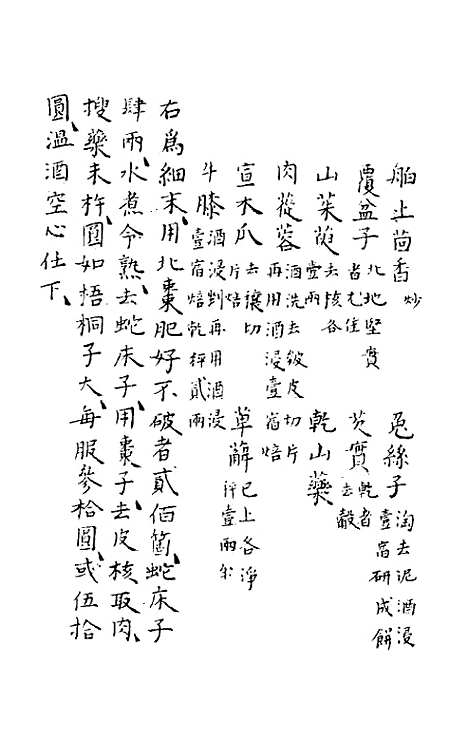 舶上茴香炒 兎絲子淘去泥酒浸壹宿研成餅
覆盆子北地堅實者尤佳 芡實乾者去殼
山茱萸去核各壹兩 乾山藥
肉蓯蓉酒洗去皴皮切片再用酒浸壹宿焙
宣木瓜去穰切片焙 萆薢已上各淨秤壹兩半
牛膝酒浸剉再用酒浸壹宿焙乾秤貳兩
右爲細末、用北棗肥好不破者貳佰箇、蛇床子
肆兩、水煮令熟、去蛇床子、用棗子、去皮核取肉、
搜藥末杵、圓如梧桐子大、每服參拾圓、或伍拾
圓、溫酒空心任下、